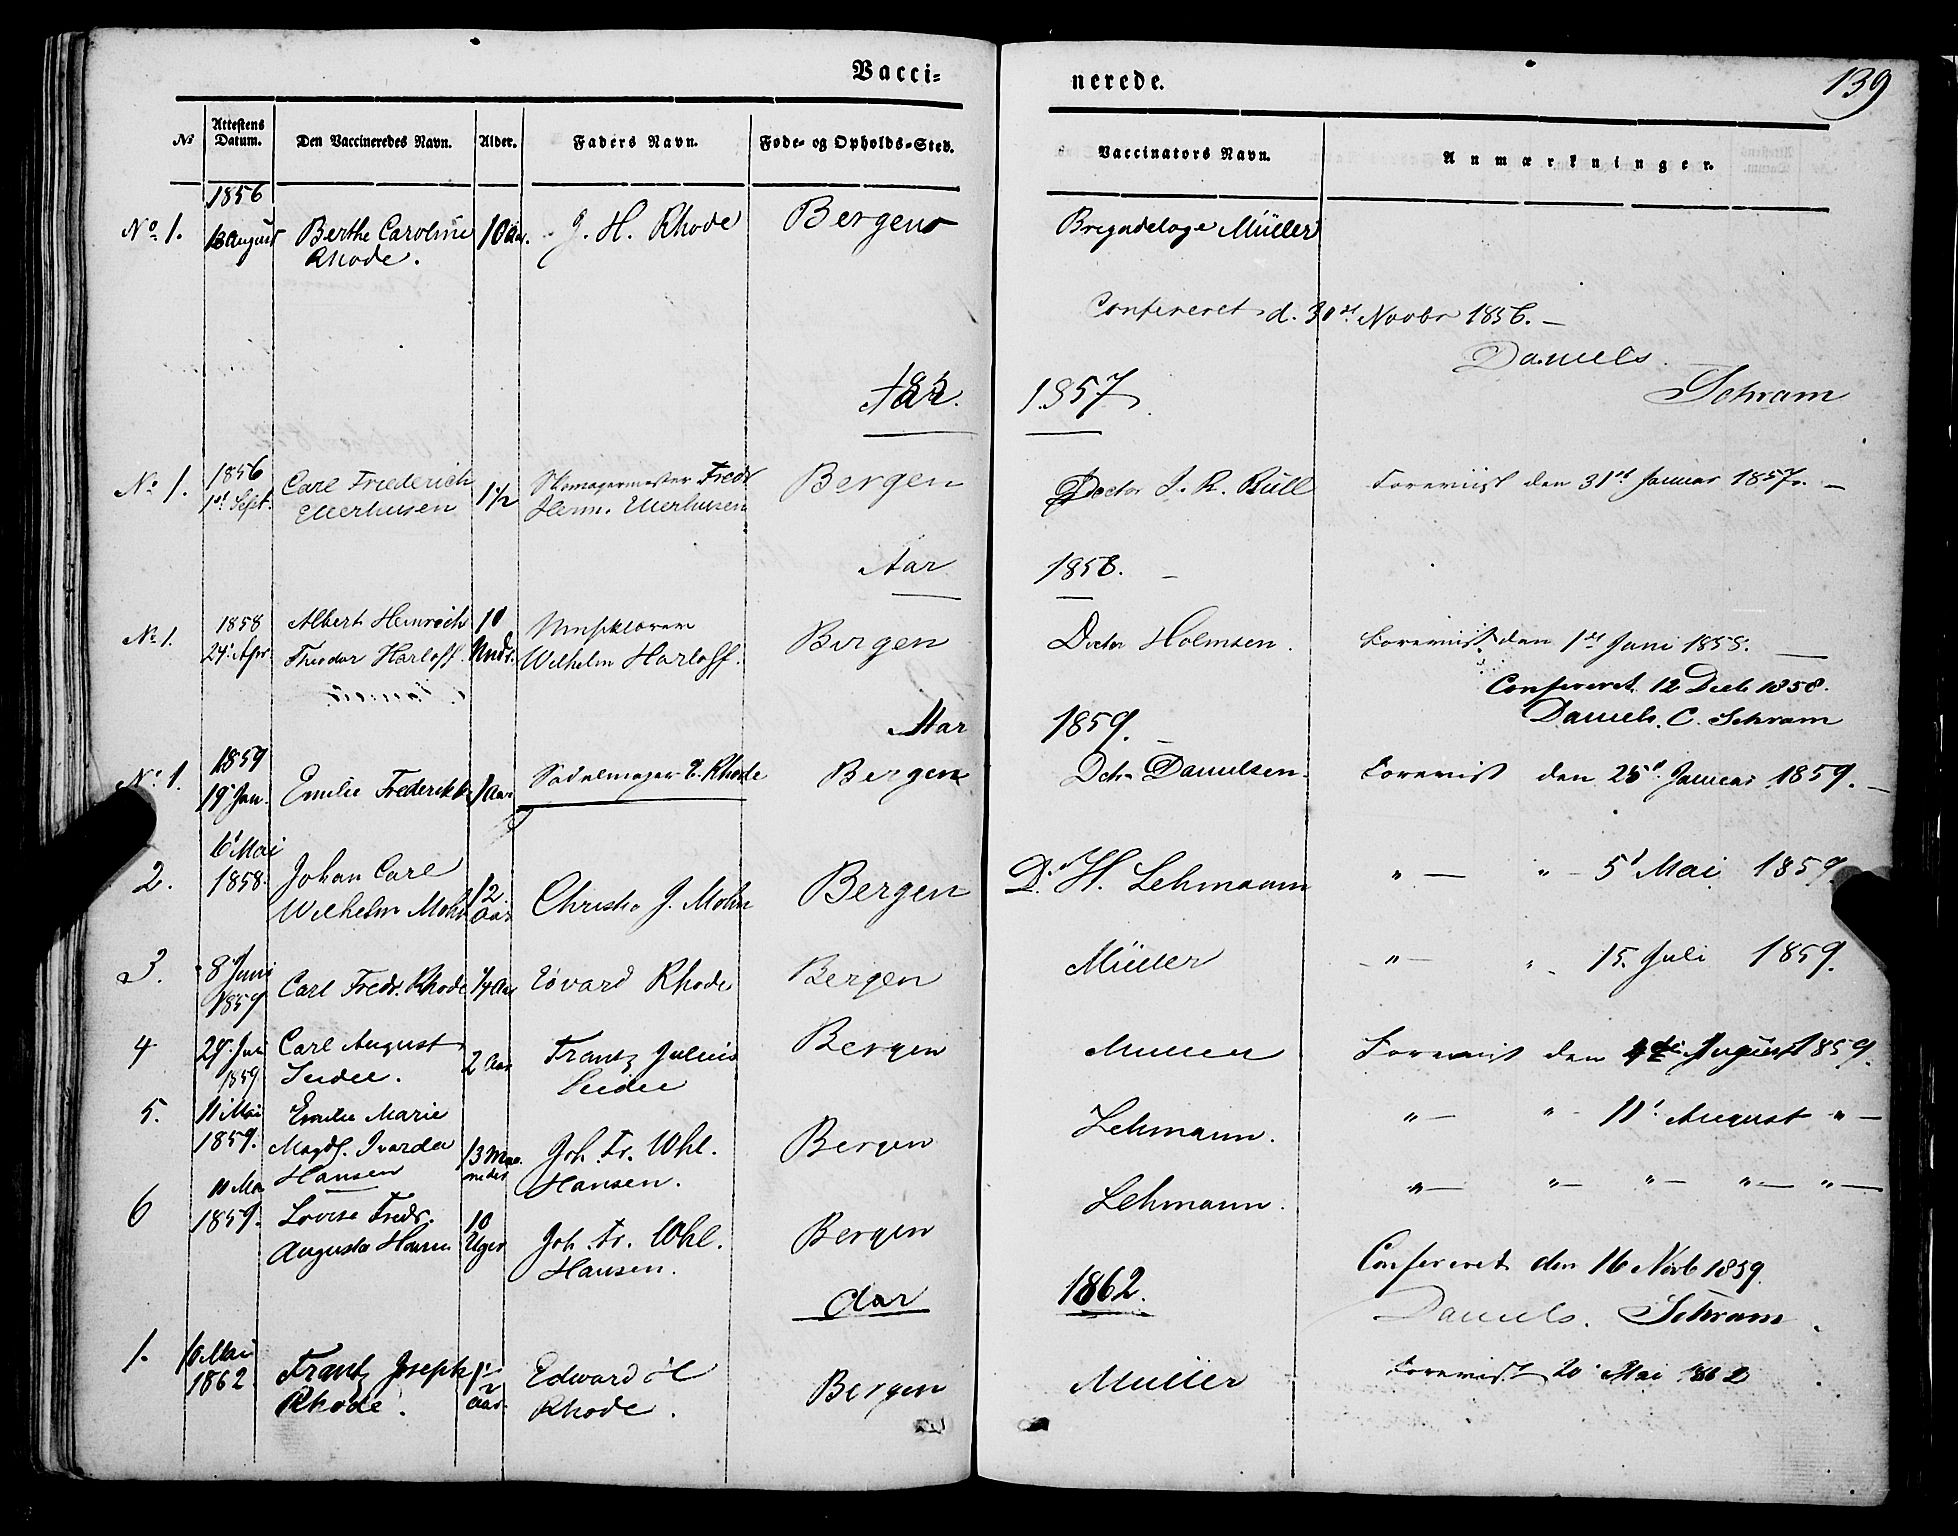 Vacci-
nerede.
139
№
Attestens Datum.
Den Vaccineredes Navn.
Alder.
Faders Navn.
Føde- og Opholds-Sted.
Vaccinators Navn.
Anmærkninger.
1856
No 1. 13 August Berthe Caroline 10 Aar. J. H. Rhode Bergen Brigadelæge Müller
Rhode.
Confereret d. 30te Novbr 1856. —
Daniels.
Schram
Aar. 1857.
1856
No 1. 1st Sept. Carl Friederich 1 1/2 Skomagermester Fredr Bergen Doctor J. R. Bull Foreviist den 31te Januar 1857. —
Ellerhusen Herm. Ellerhusen
Aar 1858. —
1858 Albert Heinrich 10
No 1. 24. Apr. Theodor Harloff. Mndr. Wilhelm Harloff. Bergen Doctor Holmsen. Forevist den 1ste Juni 1858. —
Confereret 12 Decb 1858.
Daniels. C. Schram
Aar 1859. —
1859
No 1. 19 Jan. Emilie Frederikke 1 Aar Sadelmager E. Rhode Bergen Doctr Danielsen. Forevist den 25t Januar 1859. —
6t Mai
2. 1858. Johan Carl
Wilhelm Mohn 12 Aar Christ. J. Mohn Bergen Dr H. Lehmann " — " - 5t Mai 1859.
3. 8 Juni
1859 Carl Fredr. Rhode Aar Edvard Rhode Bergen Müller - " — " - 15. Juli 1859.
4 29. Juli Carl August 2 Aar Frantz Julius Bergen Müller Forevist den August 1859.
1859 Seidel. Seidel
5. 11 Mai Emilie Marie
1859. Magdl. Ivarda 13 Maa- Joh. Fr. Whl. Bergen Lehmann. " — " - 11t August " —
Hansen neder Hansen.
11 Mai
6 1859. Lovise Fredr. 10
Augusta Hansen Uger Joh. Fr. Whl. Bergen Lehmann. " — " — " — " — " —
Hansen.
Confereret den 16 Novb 1859.
Daniels. Schram.
Aar 1862.
1. 10 Mai
1862. Frantz Joseph 1 1/2 Edward Bergen Müller Forevist 20 Mai 1862
Rhode. Aar. Rhode.